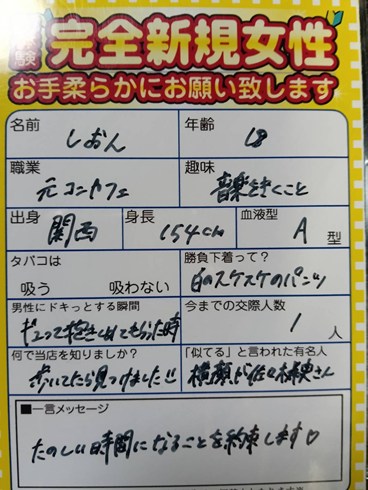 完全新規女性
お手柔らかにお願い致します
名前 しおん 年齢 18
職業 元コンカフェ 趣味 音楽をきくこと
出身 関西 身長 154cm 血液型 A型
タバコは 吸う 吸わない 勝負下着って? 白のスケスケのパンツ
男性にドキっとする瞬間 ギュって抱きしめてもらった時 今までの交際人数 1人
何で当店を知りましたか? 歩いてたら見つけました!! 「似てる」と言われた有名人 横顔が佐々木希さん
■一言メッセージ
たのしい時間になることを約束します♡